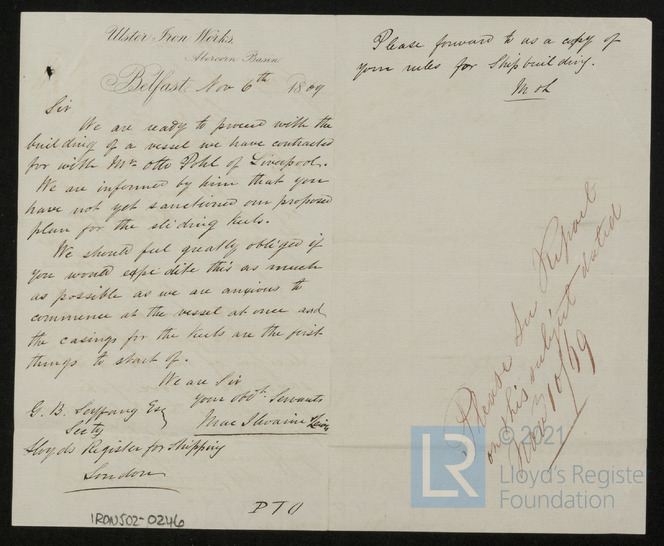 Ulster Iron Works,
Abercorn Basin
Belfast, Nov 6th 1879
Sir
We are ready to proceed with the
building of a vessel we have contracted
for with Mr Otto Pohl of Liverpool.
We are informed by him that you
have not yet sanctioned our proposed
plan for the sliding keels.
We should feel greatly obliged if
you would expedite this as much
as possible as we are anxious to
commence at the vessel at once and
the casings for the keels are the first
things to start of.
We are Sir
your obdt. Servants
Mac Ilwaine & Lewis
G. B. Seyfang Esq
Secty
Lloyds Register for Shipping
London
PTO
IRON502-0246
Please forward to us a copy of
your rules for Shipbuilding.
M & L
Please See Report
on this subject dated
Nov 10/79
© 2021
LR
Lloyd's Register
Foundation